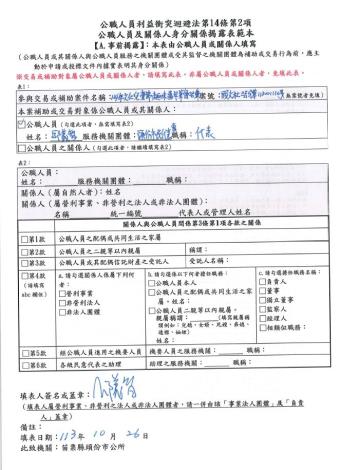 公職人員利益衝突迴避法第14條第2項
公職人員及關係人身分關係揭露表範本
【A.事前揭露】：本表由公職人員或關係人填寫
（公職人員或其關係人與公職人員服務之機關團體或受其監督之機關團體為補助或交易行為前，應主動於申請或投標文件內據實表明其身分關係）
※交易或補助對象屬公職人員或關係人者，請填寫此表。非屬公職人員或關係人者，免填此表。
表1：
參與交易或補助案件名稱：
案號：
（無案號者免填）
本案補助或交易對象係公職人員或其關係人：
☑公職人員（勾選此項者，無需填寫表2）
姓名：
服務機關團體：
職稱：代表
□公職人員之關係人（勾選此項者，請繼續填寫表2）
表2：
公職人員：
姓名： 服務機關團體： 職稱：
關係人（屬自然人者）：姓名
關係人（屬營利事業、非營利之法人或非法人團體）：
名稱 統一編號 代表人或管理人姓名
關係人與公職人員間係第3條第1項各款之關係
□第1款 公職人員之配偶或共同生活之家屬
□第2款 公職人員之二親等以內親屬 稱謂：
□第3款 公職人員或其配偶信託財產之受託人 受託人名稱：
□第4款
（請填寫abc欄位）
a.請勾選關係人係屬下列何者：
□營利事業
□非營利法人
□非法人團體
b.請勾選係以下何者擔任職務：
□公職人員本人
□公職人員之配偶或共同生活之家屬。姓名：
□公職人員二親等以內親屬。
親屬稱謂：
姓名：
c.請勾選擔任職務名稱：
□負責人
□董事
□獨立董事
□監察人
□經理人
□相類似職務：
□第5款 經公職人員進用之機要人員 機要人員之服務機關： 職稱：
□第6款 各級民意代表之助理 助理之服務機關： 職稱：
填表人簽名或蓋章：
（填表人屬營利事業、非營利之法人或非法人團體者，請一併由該「事業法人團體」及「負責人」蓋章）
備註：
填表日期：113年10月26日
此致機關：苗栗縣頭份市公所